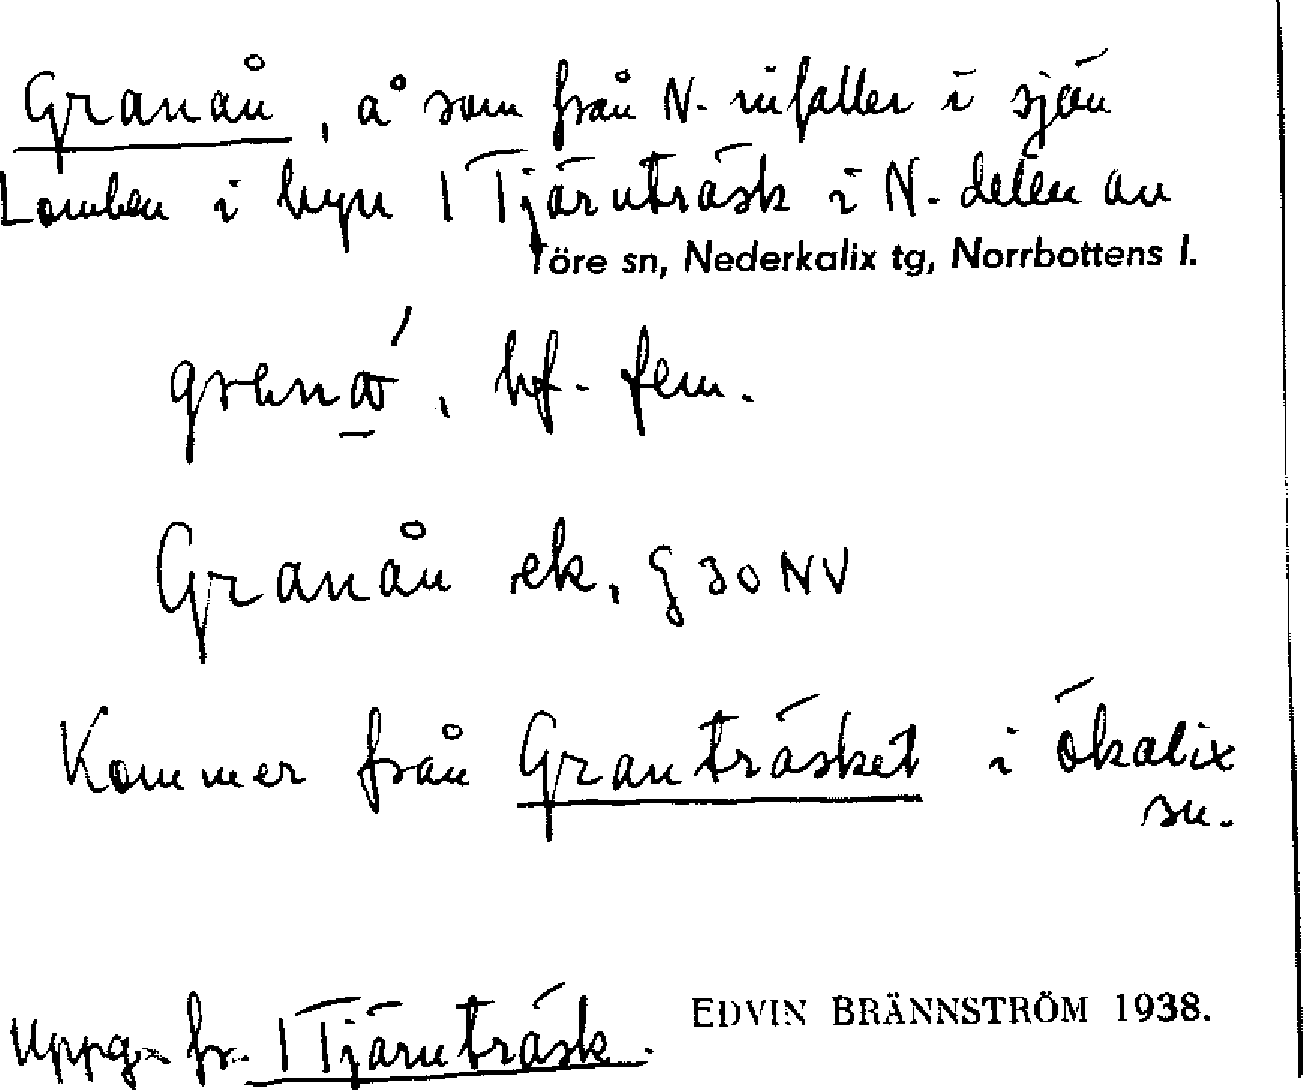 Granån, å som från N. infaller i sjön
Lomben i byn 1 Tjärnträsk i N. delen av
Töre sn, Nederkalix tg, Norrbottens l.
bf. fem.
Granån ek, § 30 NV
Kommer från Granträsket i Ökalix
sn.
Uppg. fr. 1 Tjärnträsk. EDVIN BRÄNNSTRÖM 1938.